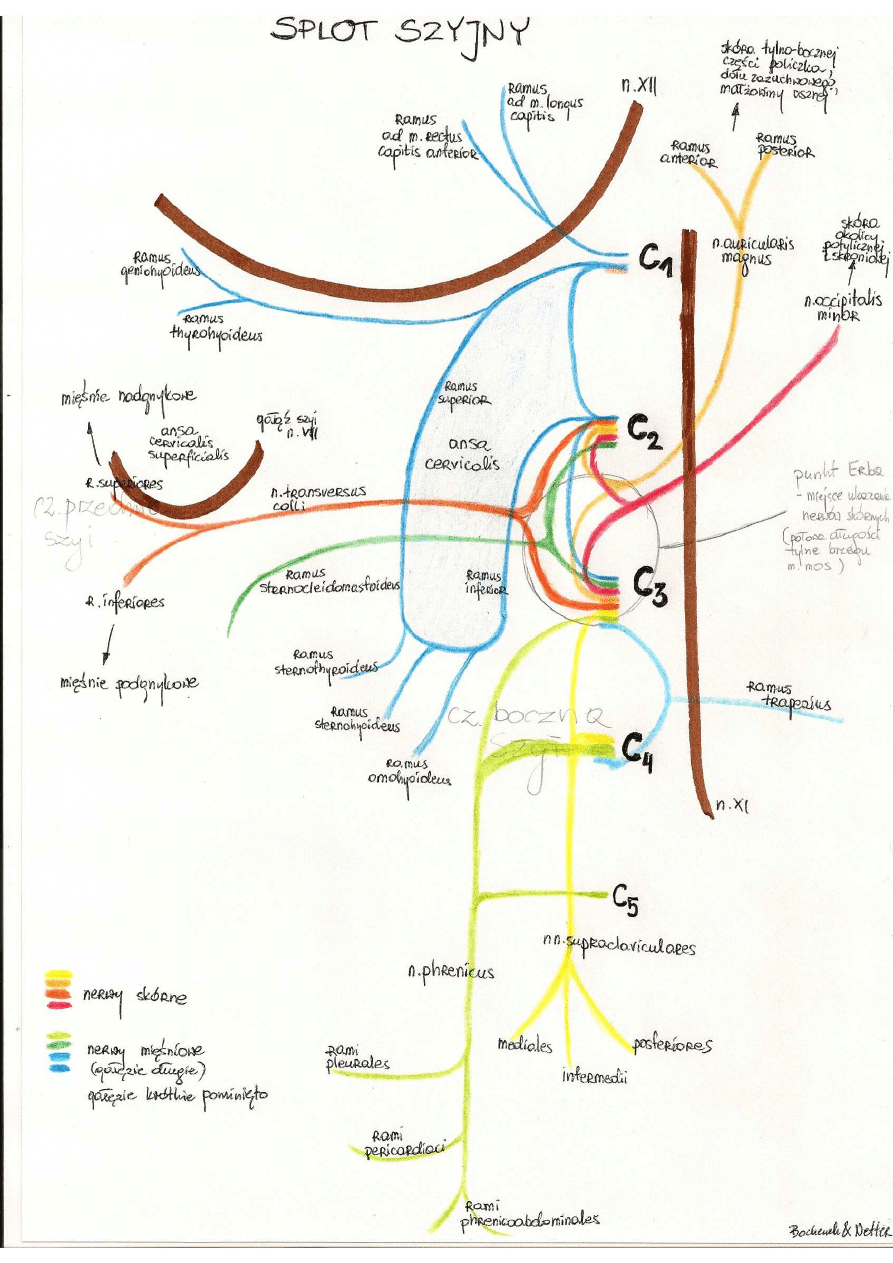 SPLOT SZYJNY
skóra tylno-bocznej
części policzka,
dołu zażuchwowego,
małżowiny usznej
n.XII
Ramus
ad m. longus
capitis
Ramus
ad m. rectus
capitis anterior
Ramus
anterior
Ramus
posterior
C1
n.auricularis
magnus
skóra
okolicy
potylicznej
i skroniowej
n.occipitalis
minor
Ramus
geniohyoideus
Ramus
thyrohyoideus
mięśnie nadgnykowe
ansa
cervicalis
superficialis
gałąź szyi
n. VII
Ramus
superior
ansa
cervicalis
C2
R.superiores
cz. przednia
szyi
n.transversus
colli
punkt Erba
- miejsce
nerwów skórnych
(połowa długości
tylne brzegu
m.mos)
Ramus
sternocleidomastoideus
Ramus
inferior
C3
R.inferiores
mięśnie podgnykowe
Ramus
sternothyroideus
Ramus
sternohyoideus
Ramus
omohyoideus
cz. boczna
szyi
C4
Ramus
trapezius
n.XI
C5
nn.supraclaviculares
n.phrenicus
mediales
intermedii
posteriores
nerwy skórne
nerwy mięśniowe
(gałęzie długie)
gałęzie krótkie pominięto
rami
pleurales
rami
pericardiaci
rami
phrenicoabdominales
Bochenek & Netter